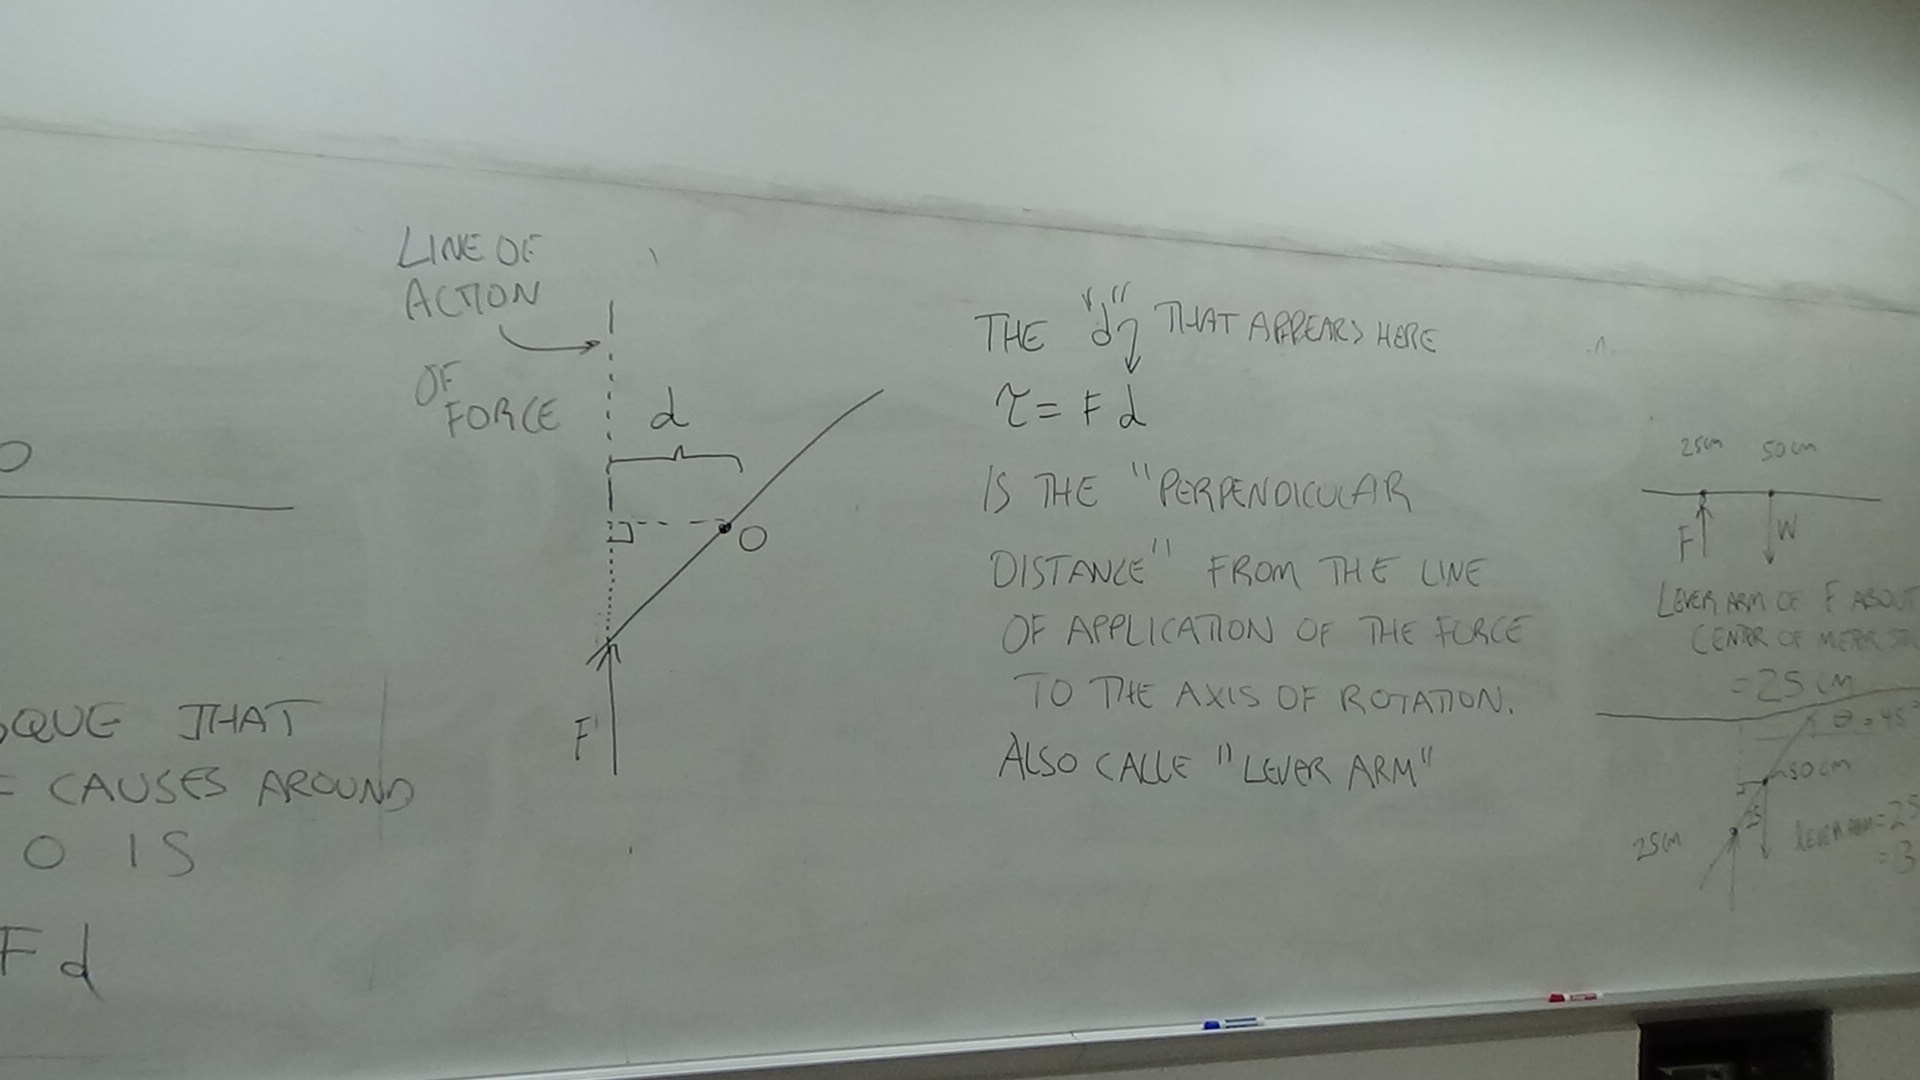 O
QUE THAT
= CAUSES AROUND
O IS
Fd
LINE OF
ACTION
OF
FORCE
d
O
F
THE "d" THAT APPEARS HERE
τ = Fd
IS THE "PERPENDICULAR
DISTANCE" FROM THE LINE
OF APPLICATION OF THE FORCE
TO THE AXIS OF ROTATION.
ALSO CALLE "LEVER ARM"
25cm 50cm
F W
LEVER ARM OF F ABOUT
CENTER OF METER
= 25 cm
θ = 45°
50cm
25
25cm
LEVER ARM = 25